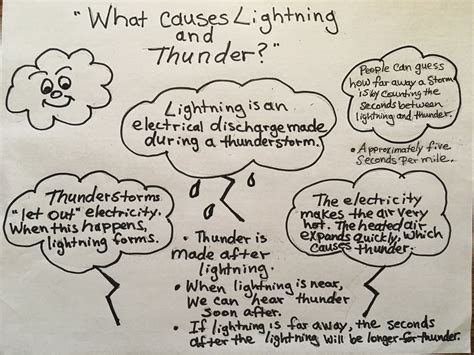 "What causes Lightning
and
Thunder?"
People can guess
how far away a Storm
is by counting the
seconds between
lightning and thunder.
• Approximately five
Seconds per mile.
Lightning is an
electrical discharge made
during a thunderstorm.
Thunderstorms
"let out" electricity.
When this happens,
lightning forms.
The electricity
makes the air very
hot. The heated air
expands quickly, which
causes thunder.
• Thunder is
made after
lightning.
• When lightning is near,
We can hear thunder
soon after.
• If lightning is far away, the seconds
after the lightning will be longer for thunder.